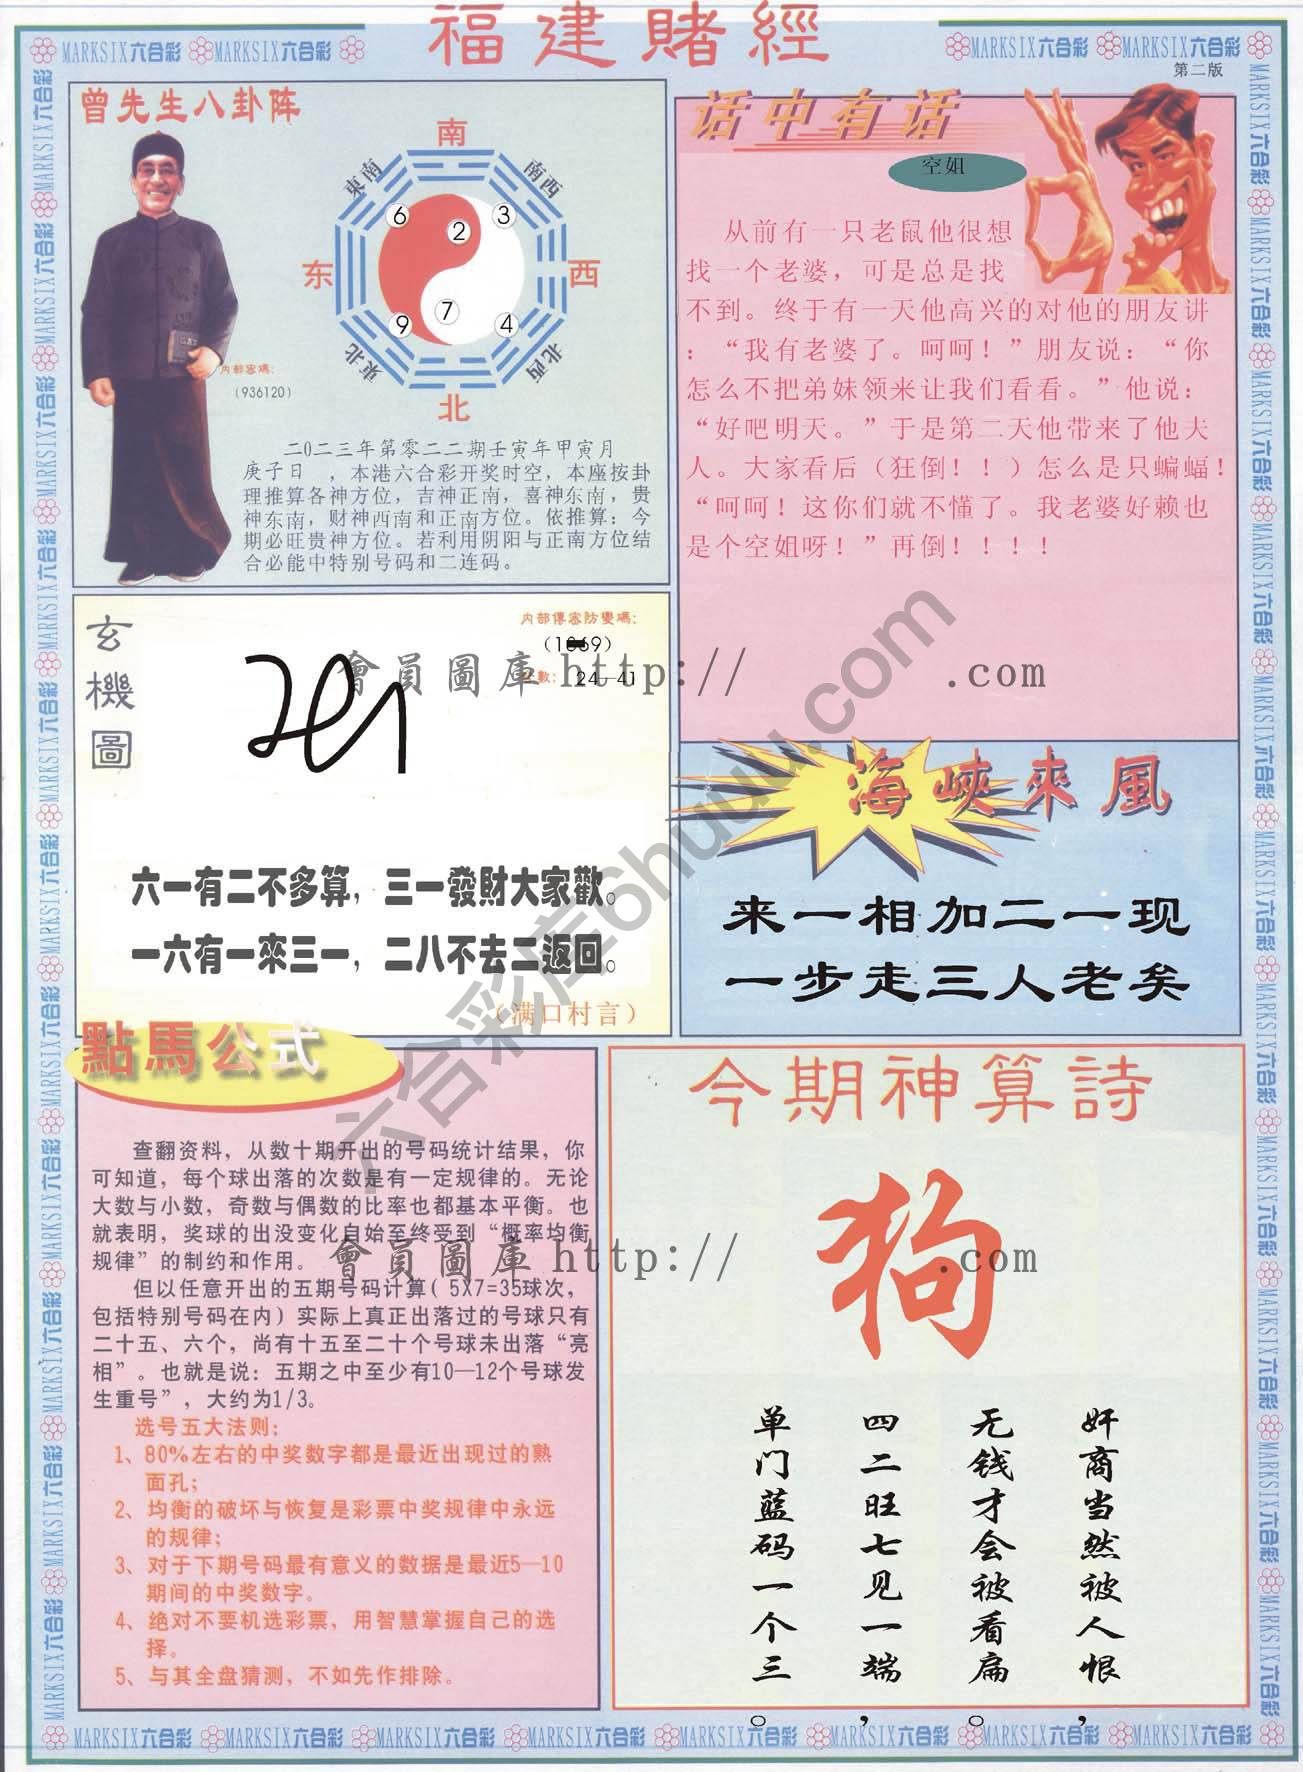 福建賭經
MARKSIX六合彩 MARKSIX六合彩
MARKSIX六合彩 MARKSIX六合彩
第二版
曾先生八卦阵
南
東南
南西
6
2
3
东
西
7
9
4
東北
北西
北
内部密碼：
（936120）
二0二三年第零二二期壬寅年甲寅月
庚子日 ，本港六合彩开奖时空，本座按卦
理推算各神方位，吉神正南，喜神东南，贵
神东南，财神西南和正南方位。依推算：今
期必旺贵神方位。若利用阴阳与正南方位结
合必能中特别号码和二连码。
话中有话
空姐
从前有一只老鼠他很想
找一个老婆，可是总是找
不到。终于有一天他高兴的对他的朋友讲
：“我有老婆了。呵呵！”朋友说：“你
怎么不把弟妹领来让我们看看。”他说：
“好吧明天。”于是第二天他带来了他夫
人。大家看后（狂倒！！）怎么是只蝙蝠！
“呵呵！这你们就不懂了。我老婆好赖也
是个空姐呀！”再倒！！！！
玄機圖
内部傳密防變碼：
24—41
會員圖庫 http:// .com
六一有二不多算，三一發財大家歡。
一六有一來三一，二八不去二返回。
（满口村言）
海峽來風
来一相加二一现
一步走三人老矣
六合彩库6huuu.com
點馬公式
查翻资料，从数十期开出的号码统计结果，你
可知道，每个球出落的次数是有一定规律的。无论
大数与小数，奇数与偶数的比率也都基本平衡。也
就表明，奖球的出没变化自始至终受到“概率均衡
规律”的制约和作用。
但以任意开出的五期号码计算( 5X7=35球次，
包括特别号码在内）实际上真正出落过的号球只有
二十五、六个，尚有十五至二十个号球未出落“亮
相”。也就是说：五期之中至少有10—12个号球发
生重号”，大约为1/3。
选号五大法则：
1、80%左右的中奖数字都是最近出现过的熟
面孔；
2、均衡的破坏与恢复是彩票中奖规律中永远
的规律；
3、对于下期号码最有意义的数据是最近5—10
期间的中奖数字。
4、绝对不要机选彩票，用智慧掌握自己的选
择。
5、与其全盘猜测，不如先作排除。
會員圖庫 http:// .com
今期神算詩
狗
奸商当然被人恨，
无钱才会被看扁。
四二旺七见一端，
单门蓝码一个三。
MARKSIX六合彩 MARKSIX六合彩 MARKSIX六合彩 MARKSIX六合彩 MARKSIX六合彩 MARKSIX六合彩 MARKSIX六合彩 MARKSIX六合彩